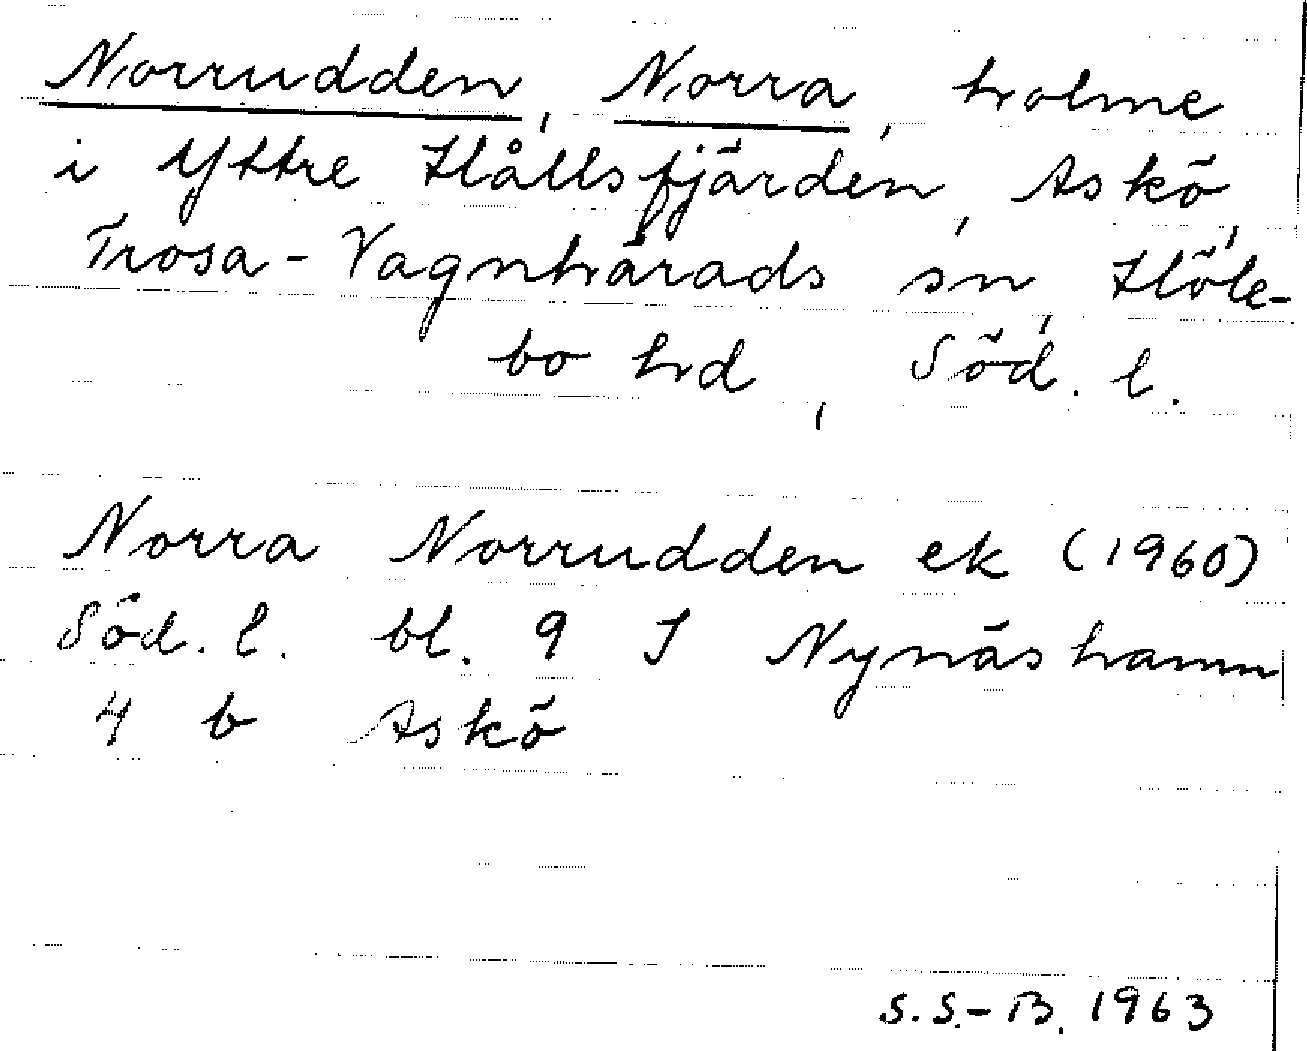 Norrudden, Norra, holme
i Yttre Hållsfjärden, Askö,
Trosa-Vagnhärads sn, Höle-
bo hd, Söd. l.
Norra Norrudden ek (1960)
Söd. l. bl. 9 I Nynäshamn
4 b Askö
S.S.-B. 1963